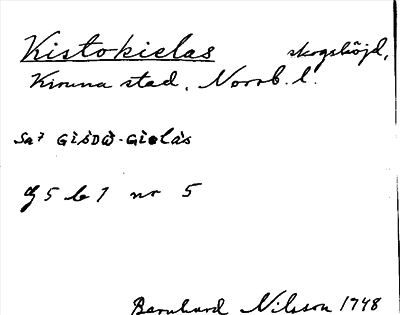 Kistokielas skogshöjd,
Kiruna stad, Norrb. l.
Sa? GisDW-Gielas
G 5 b 1 nr 5
Bernhard Nilsson 1948